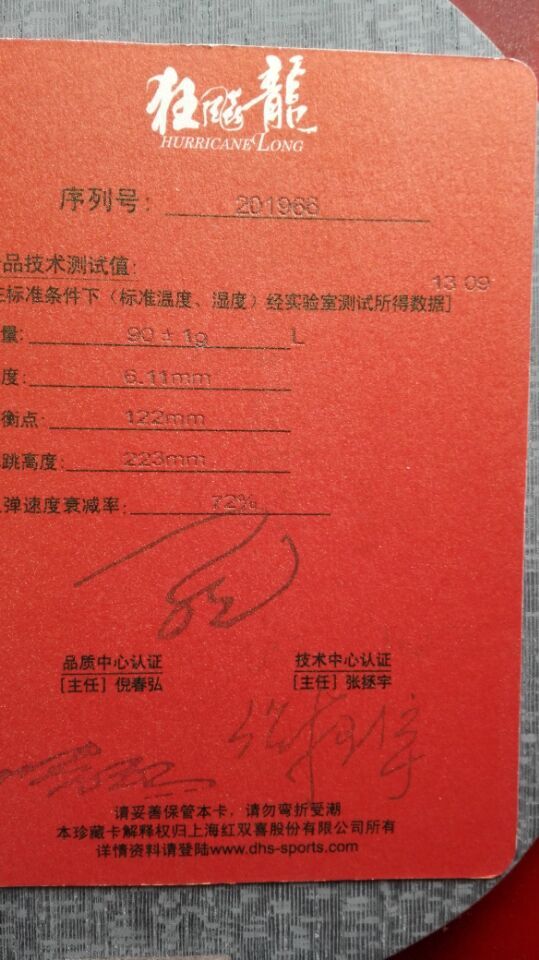 狂飚龍
HURRICANE LONG
序列号: 201966
品技术测试值:
13 09
标准条件下（标准温度、湿度）经实验室测试所得数据]
量: 90±1g L
度: 6.11mm
衡点: 122mm
跳高度: 223mm
弹速度衰减率: 72%
品质中心认证 技术中心认证
[主任] 倪春弘 [主任] 张拯宇
请妥善保管本卡，请勿弯折受潮
本珍藏卡解释权归上海红双喜股份有限公司所有
详情资料请登陆www.dhs-sports.com